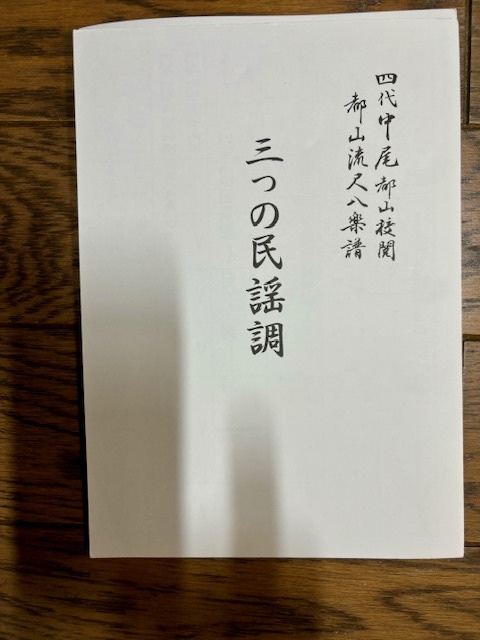 四代中尾都山校閲
都山流尺八楽譜
三つの民謡調